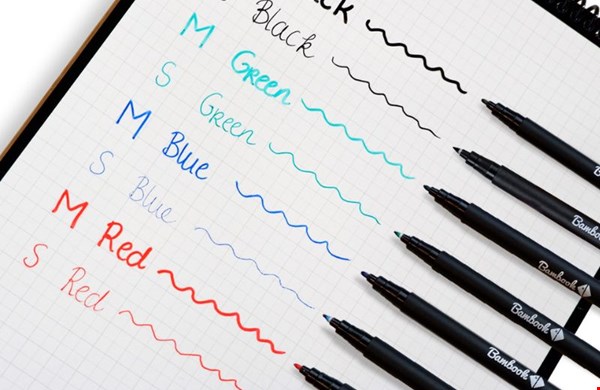 ck
Black
M Green
S Green
M Blue
S Blue
M Red
S Red
Bambook
Bambook
Bambook